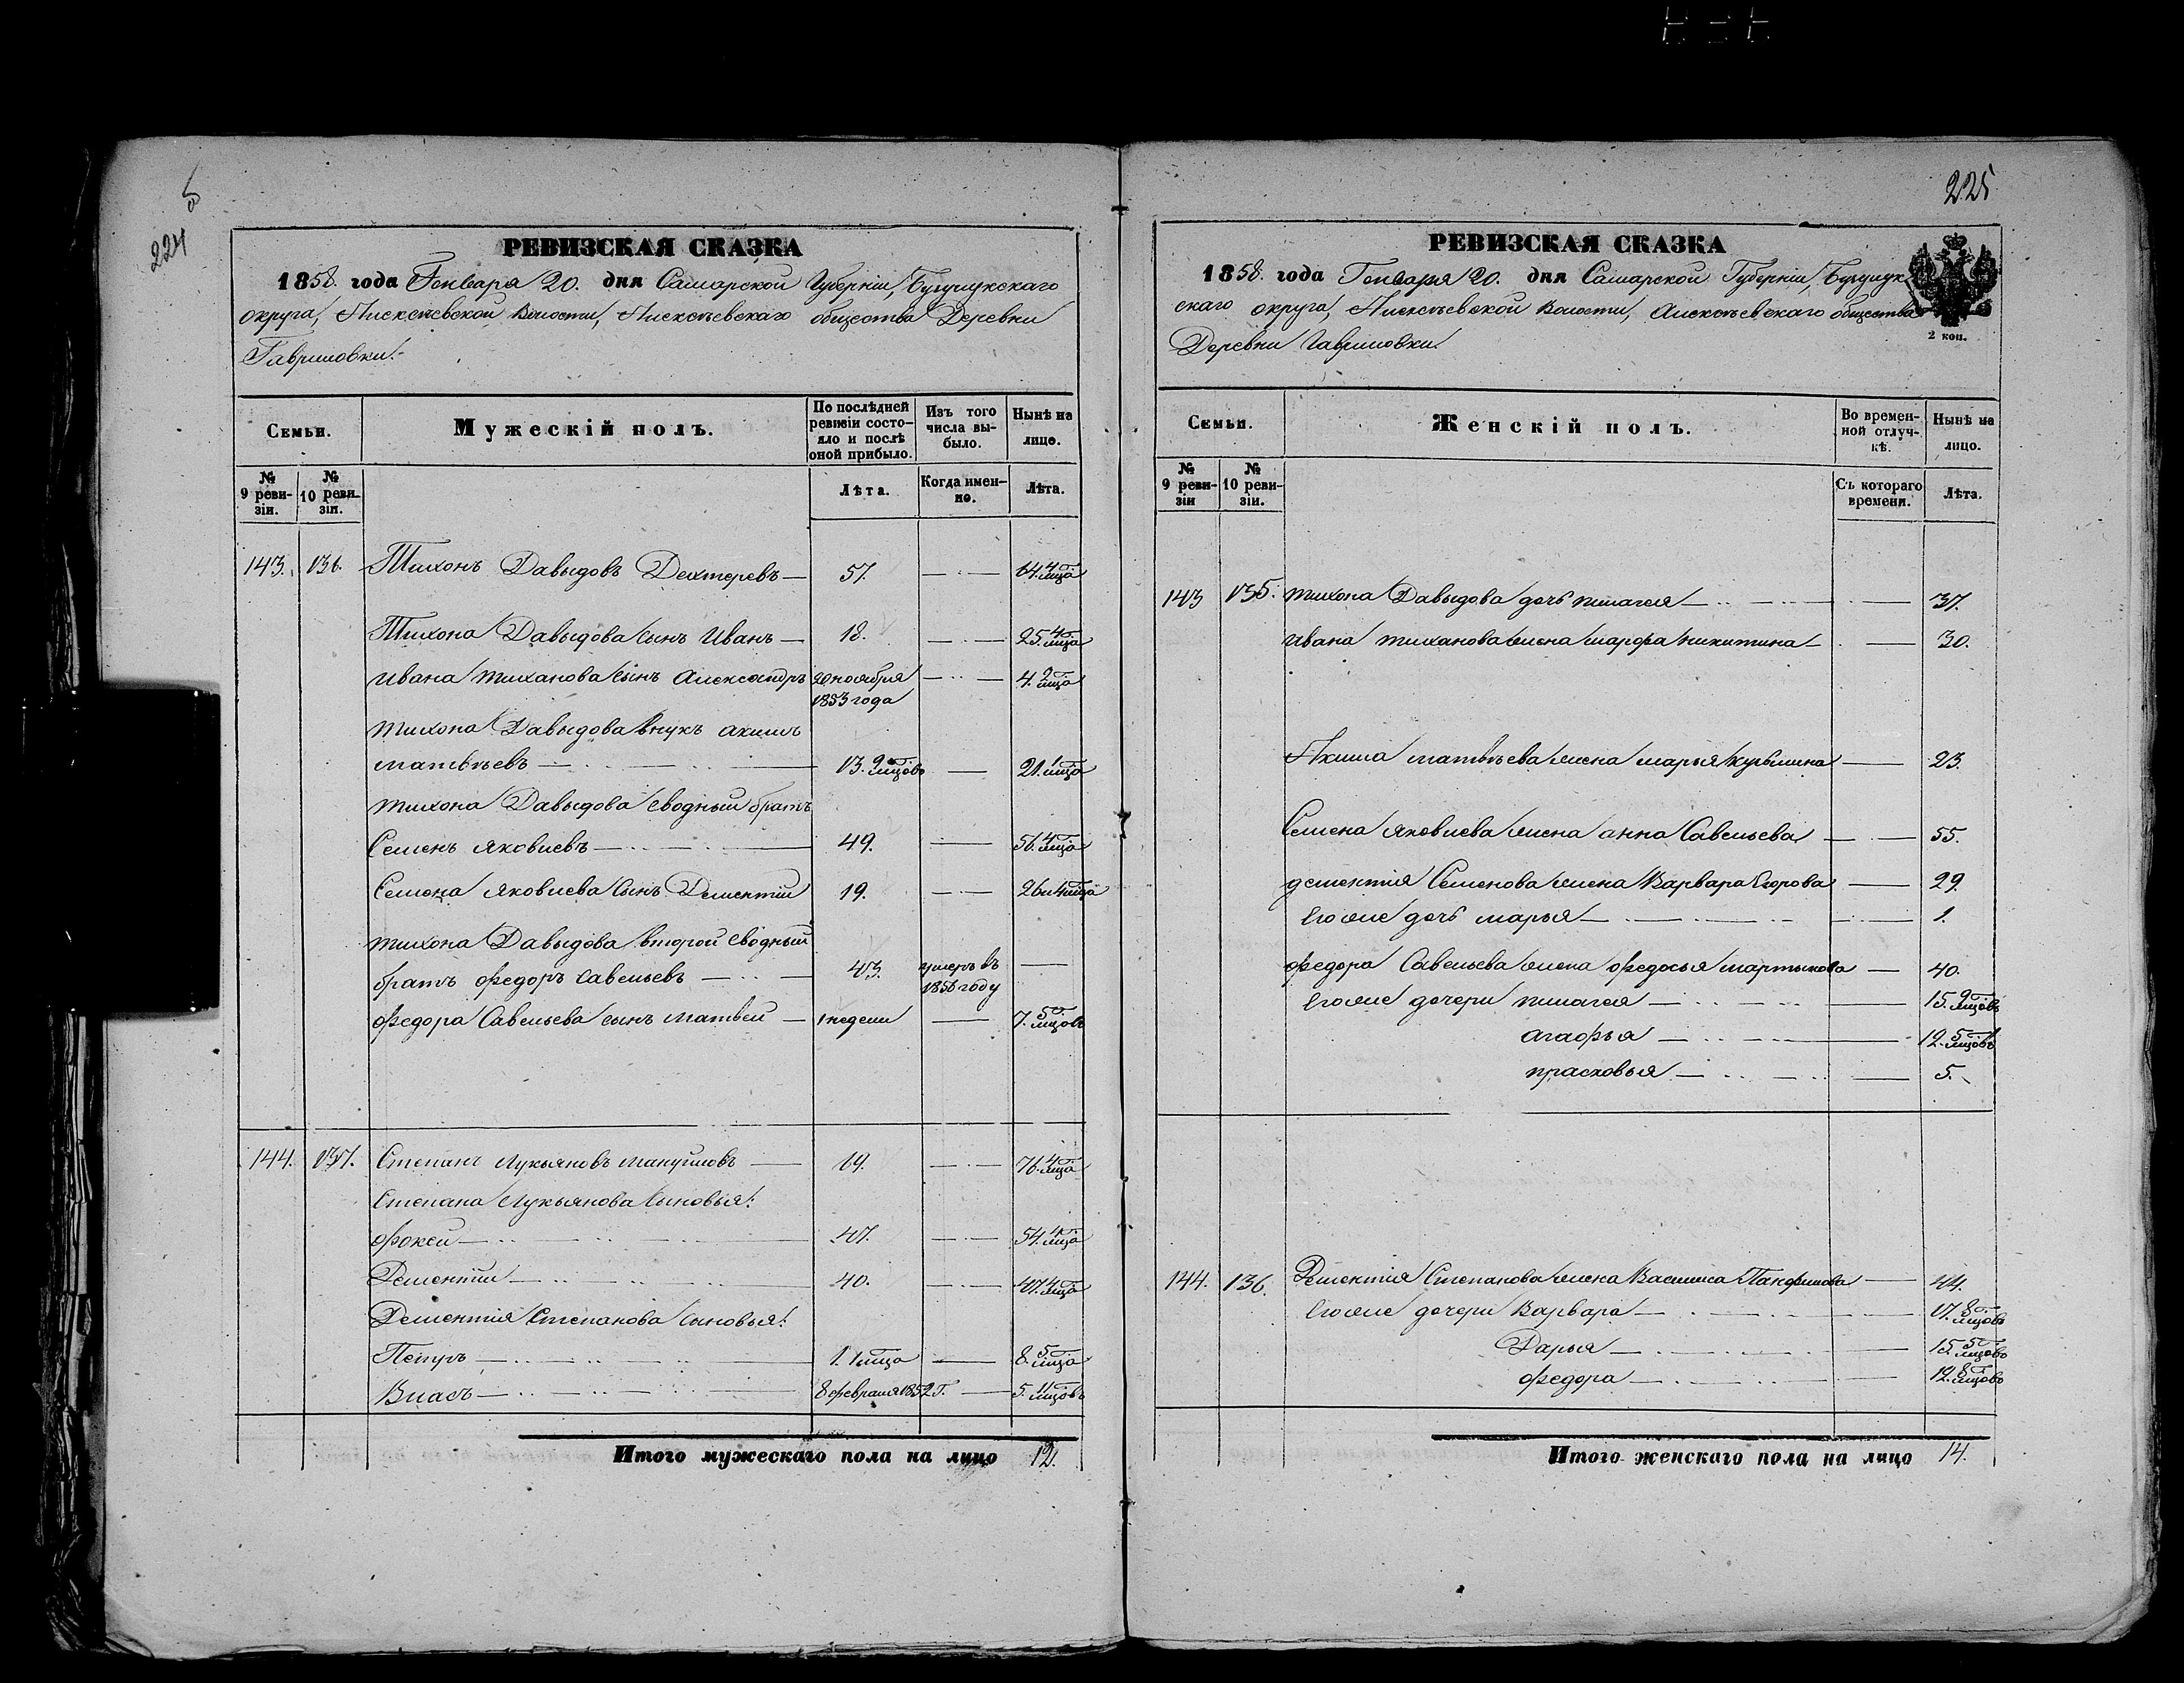 5
224
РЕВИЗСКАЯ СКАЗКА
1858. года Генваря 20. дня Самарской Губерніи, Бузулукскаго
округа, Алексѣевской Волости, Алексѣевскаго общества Деревни
Гавриловки.
Семьи.
Мужескій полъ.
По послѣдней ревизіи состояло и послѣ оной прибыло.
Изъ того числа выбыло.
Нынѣ на лице.
№ 9 ревизіи.
№ 10 ревизіи.
Лѣта.
Когда именно.
Лѣта.
143. 136. Тихонъ Давыдовъ Дехтеревъ — 57. — 64. 4 мца
Тихона Давыдова сынъ Иванъ — 18. — 25. 4 мца
Ивана Тиханова сынъ Александръ 20 ноября — 4. 2 мца
1853 года
Тихона Давыдова внукъ Акимъ
Матвѣевъ — 13. 9 мцовъ — 21. 1 мца
Тихона Давыдова сводный братъ
Семенъ Яковлевъ — 49. — 56. 4 мца
Семена Яковлева сынъ Дементій 19. — 26 и 4 мца
Тихона Давыдова второй сводный
братъ Федоръ Савельевъ — 43. умеръ въ —
1856 году
Федора Савельева сынъ Матвей — 1 недели — 7. 5 мцовъ
144. 137. Степанъ Лукьяновъ Мануйловъ — 69. — 76. 4 мца
Степана Лукьянова сыновья:
Фокей — 47. — 54. 4 мца
Дементій — 40. — 47. 4 мца
Дементія Степанова сыновья:
Петръ — 1. 1 мца — 8. 5 мца
Власъ — 8 февраля 1852 г. — 5. 11 мцовъ
Итого мужескаго пола на лицо 12.
225
РЕВИЗСКАЯ СКАЗКА
1858. года Генваря 20. дня Самарской Губерніи, Бузулук
скаго округа, Алексѣевской Волости, Алексѣевскаго общества
Деревни Гавриловки.
2 коп.
Семьи.
Женскій полъ.
Во временной отлучкѣ.
Нынѣ на лицо.
№ 9 ревизіи
№ 10 ревизіи.
Съ котораго времени.
Лѣта.
143 135. Тихона Давыдова дочь Пилагея — 37.
Ивана Тиханова жена Марфа Никитина — 30.
Акима Матвѣева жена Марья Кузьмина — 23.
Семена Яковлева жена Анна Савельева — 55.
Дементія Семенова жена Варвара Егорова — 29.
Его же дочь Марья — 1.
Федора Савельева жена Федосья Мартынова — 40.
Его же дочери Пилагея — 15. 9 мцовъ
Агафья — 12. 5 мцовъ
Прасковья — 5.
144. 136. Дементія Степанова жена Василиса Панфилова — 44.
Его же дочери Варвара — 17. 8 мцовъ
Дарья — 15. 5 мцовъ
Федора — 12. 8 мцовъ
Итого женскаго пола на лицо 14.